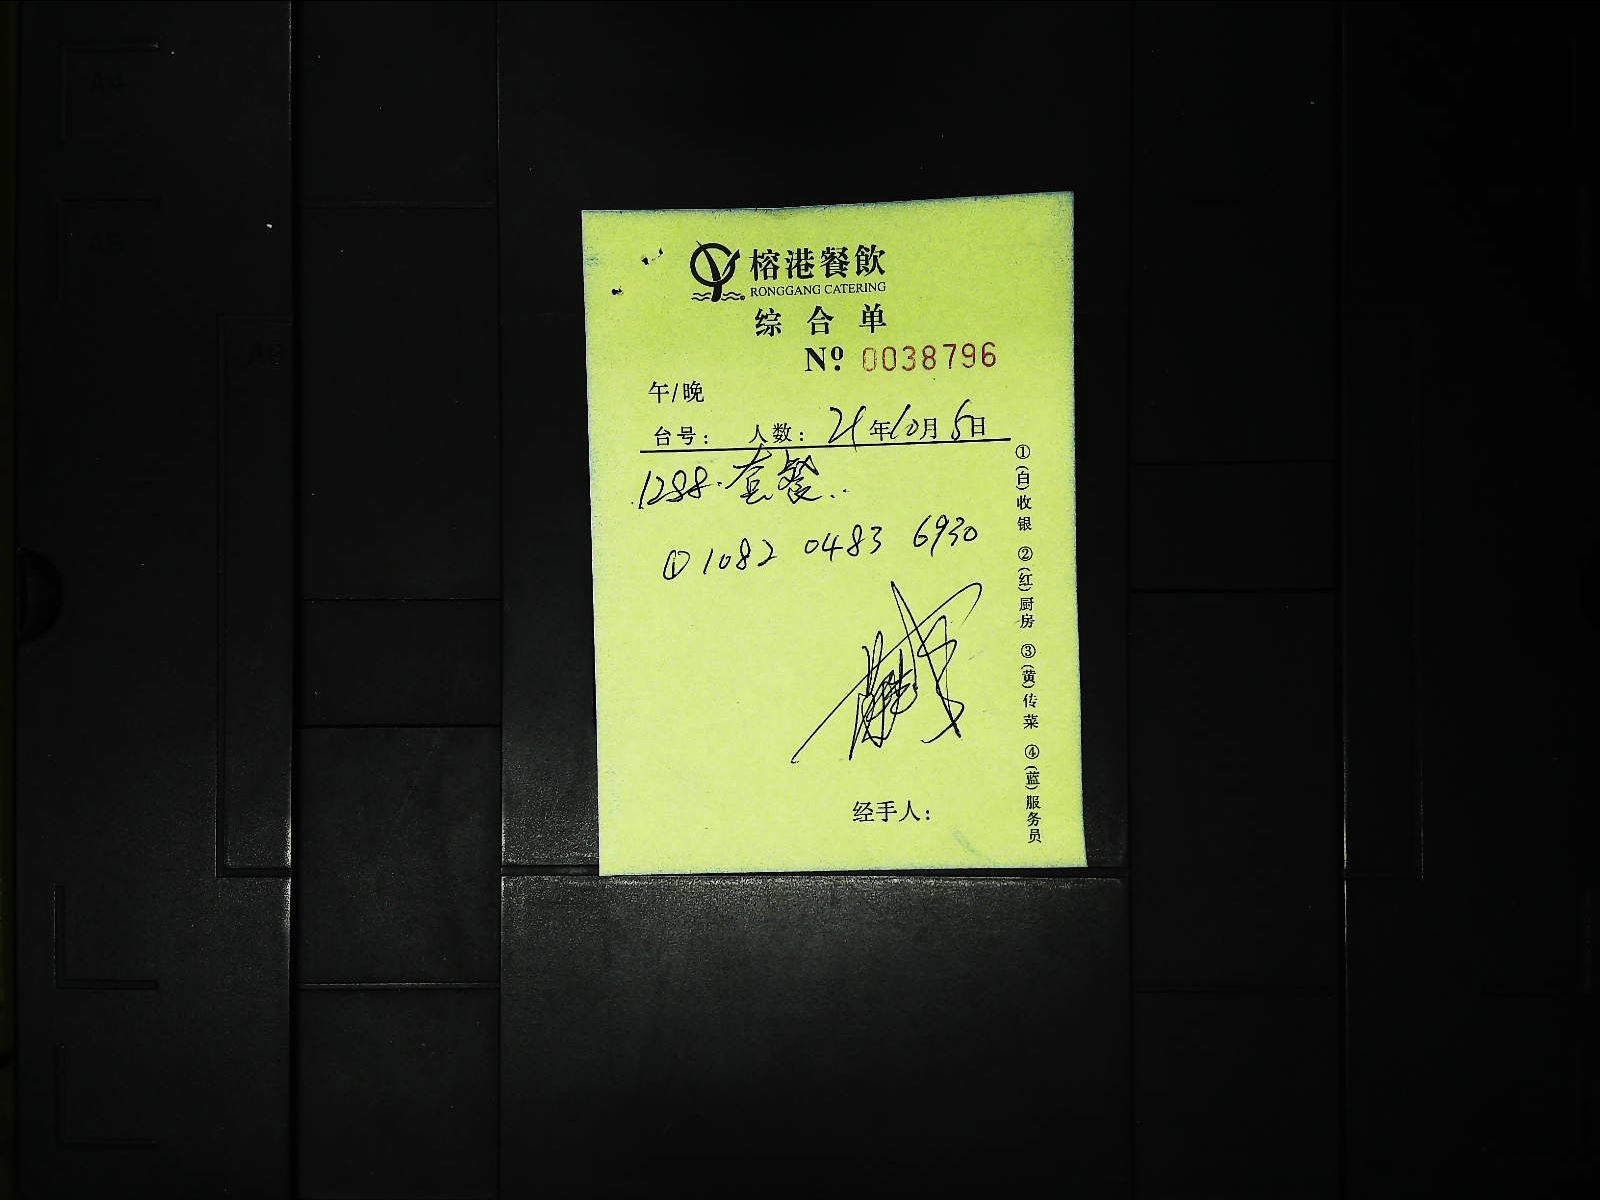 榕港餐飲
RONGGANG CATERING
综合单
Nº 0038796
午/晚
台号： 人数： 21年10月6日
1288.套餐..
①1082 0483 6930
经手人：
①(白)收银 ②(红)厨房 ③(黄)传菜 ④(蓝)服务员